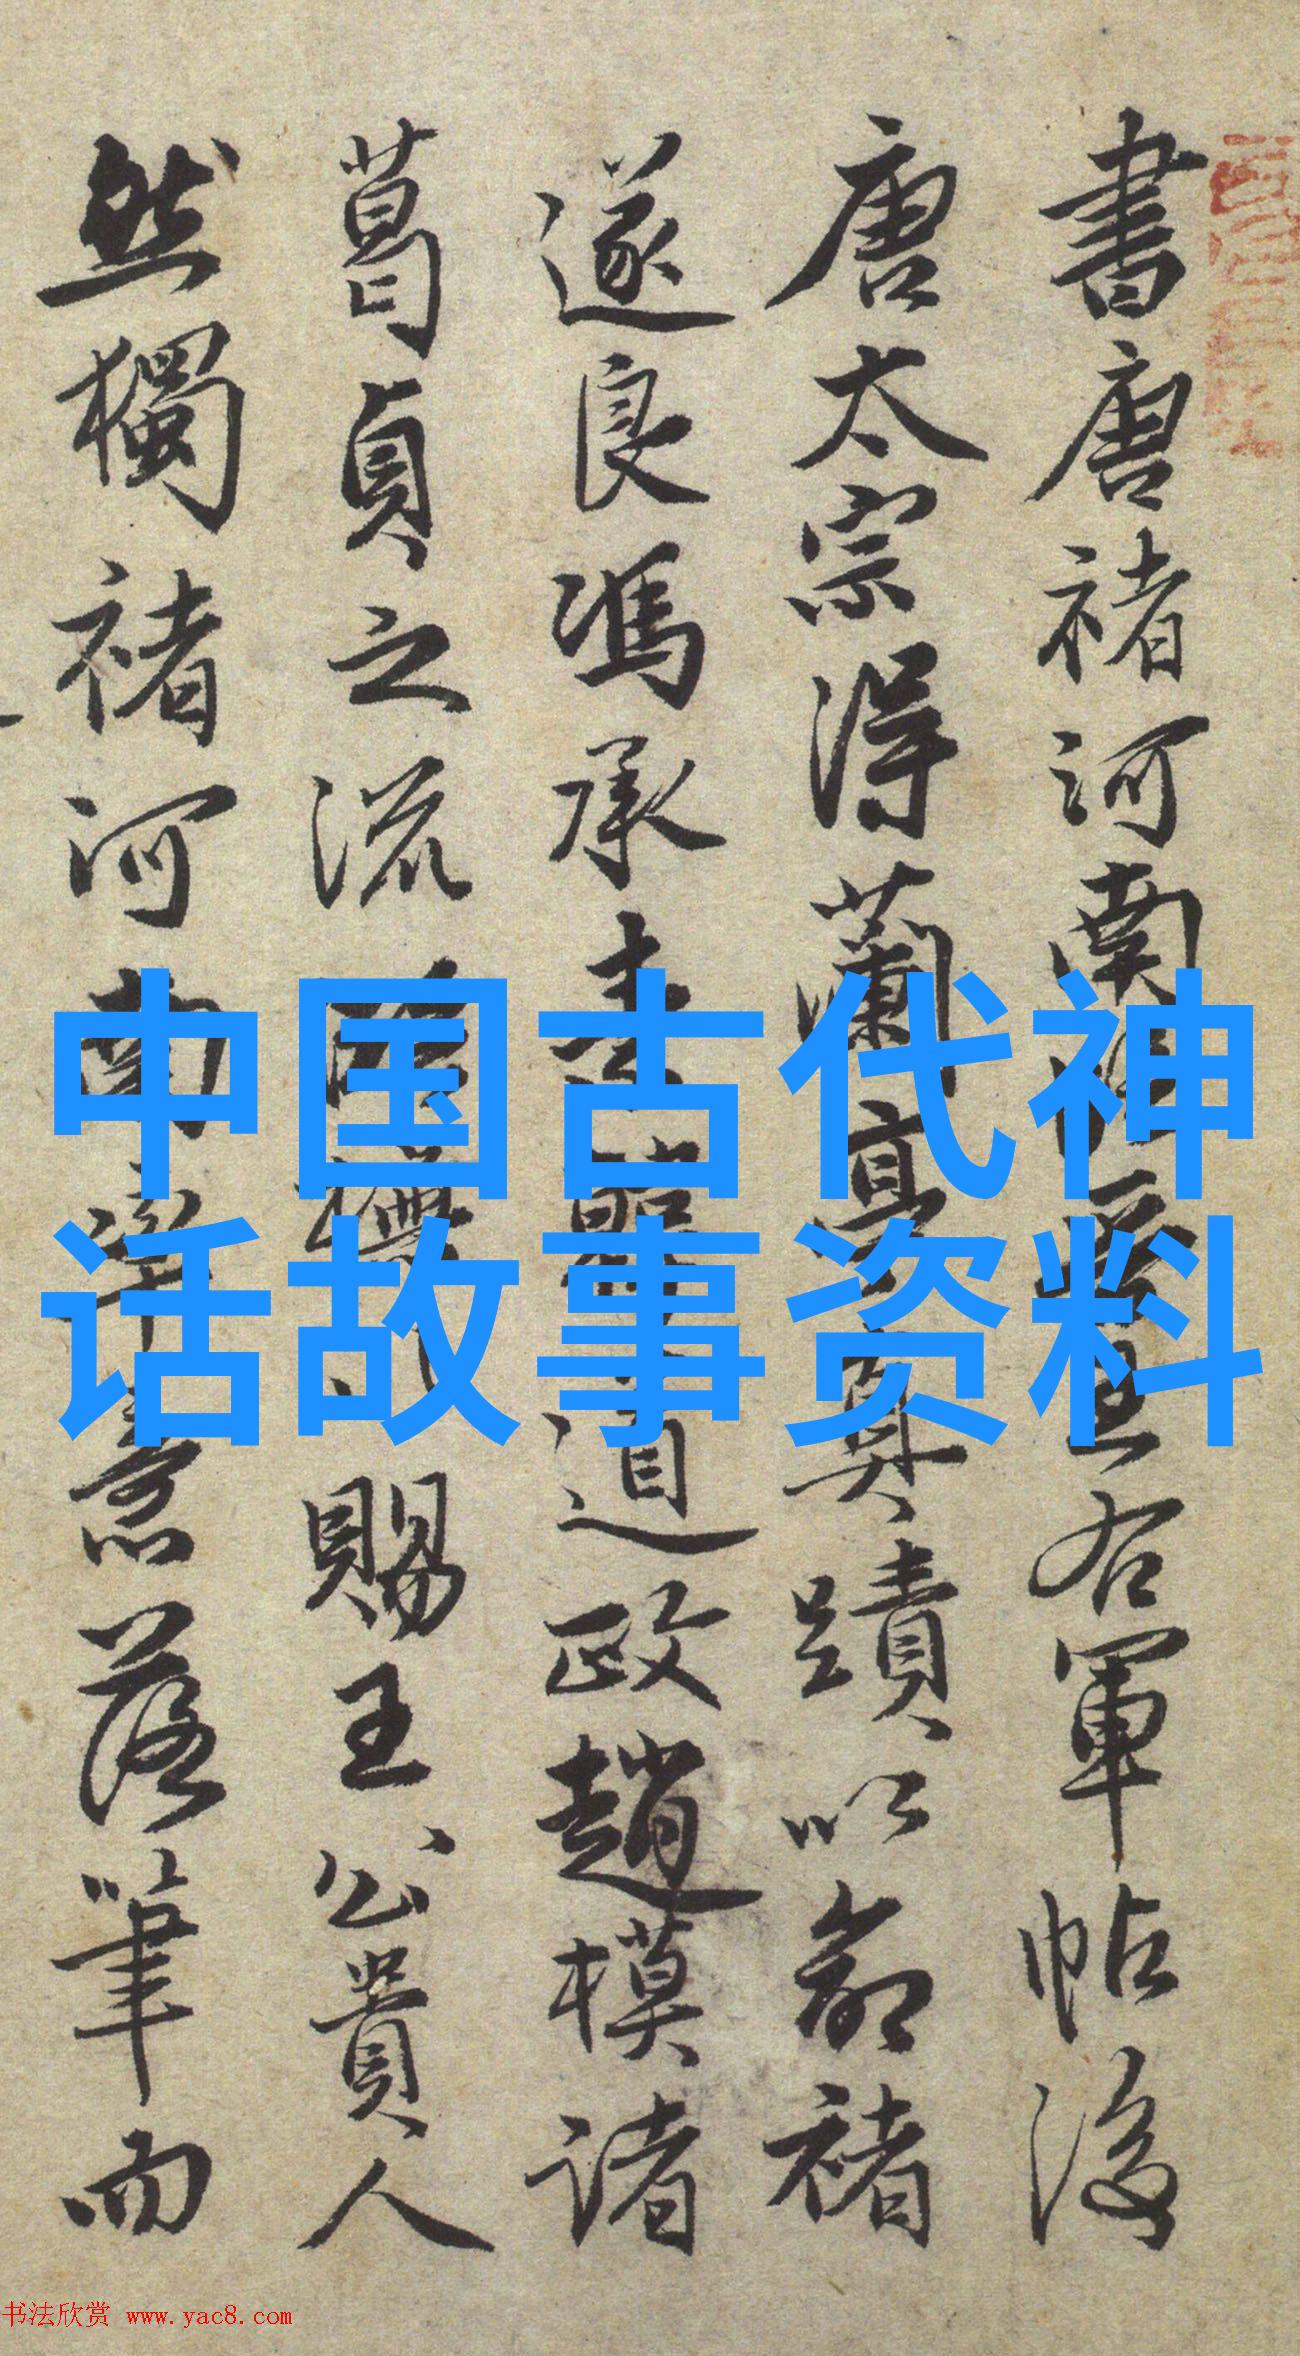 中国古代神
话故事资料
書唐褚河南
右軍帖後
唐太宗得蘭真蹟以命褚
遂良馮承素 道政趙模諸
葛貞之流 賜王公貴人
然獨褚河南 意落筆而
书法欣赏 www.yac8.com